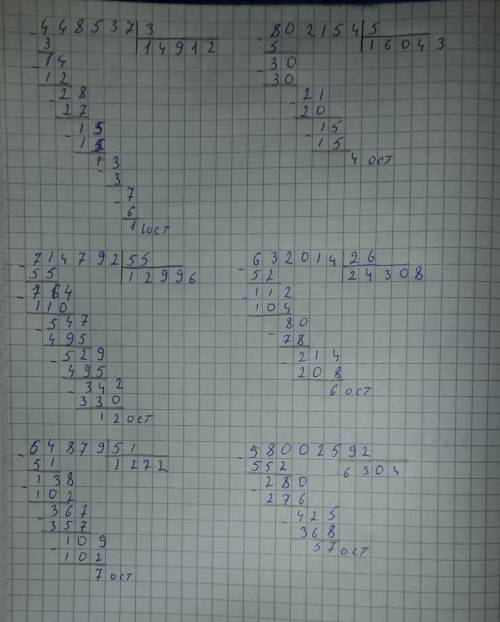 448537 3
3 14912
14
12
28
27
15
15
13
3
7
6
1 ост
802154 5
5 16043
30
30
21
20
15
15
4 ост
714792 55
55 12996
164
110
547
495
529
495
342
330
12 ост
632014 26
52 24308
112
104
80
78
214
208
6 ост
64879 51
51 1272
138
102
367
357
109
102
7 ост
580025 92
552 6304
280
276
425
368
57 ост